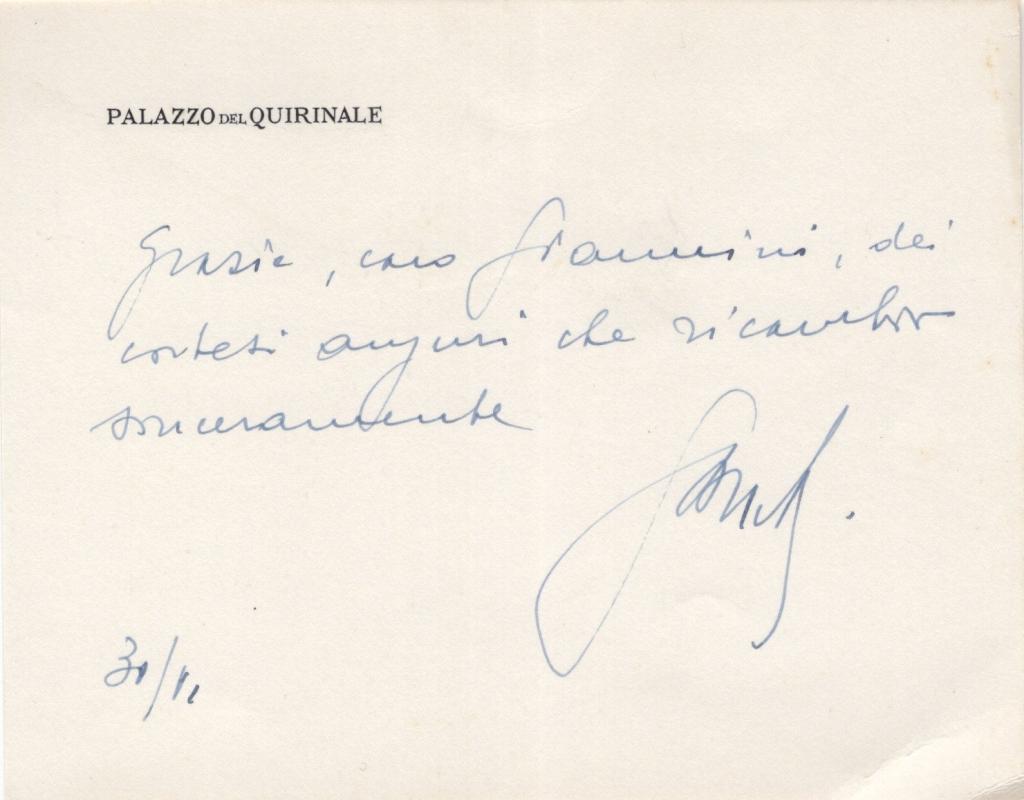 PALAZZO DEL QUIRINALE
Grazie, caro Giannini, dei
cortesi auguri che ricambio
sinceramente